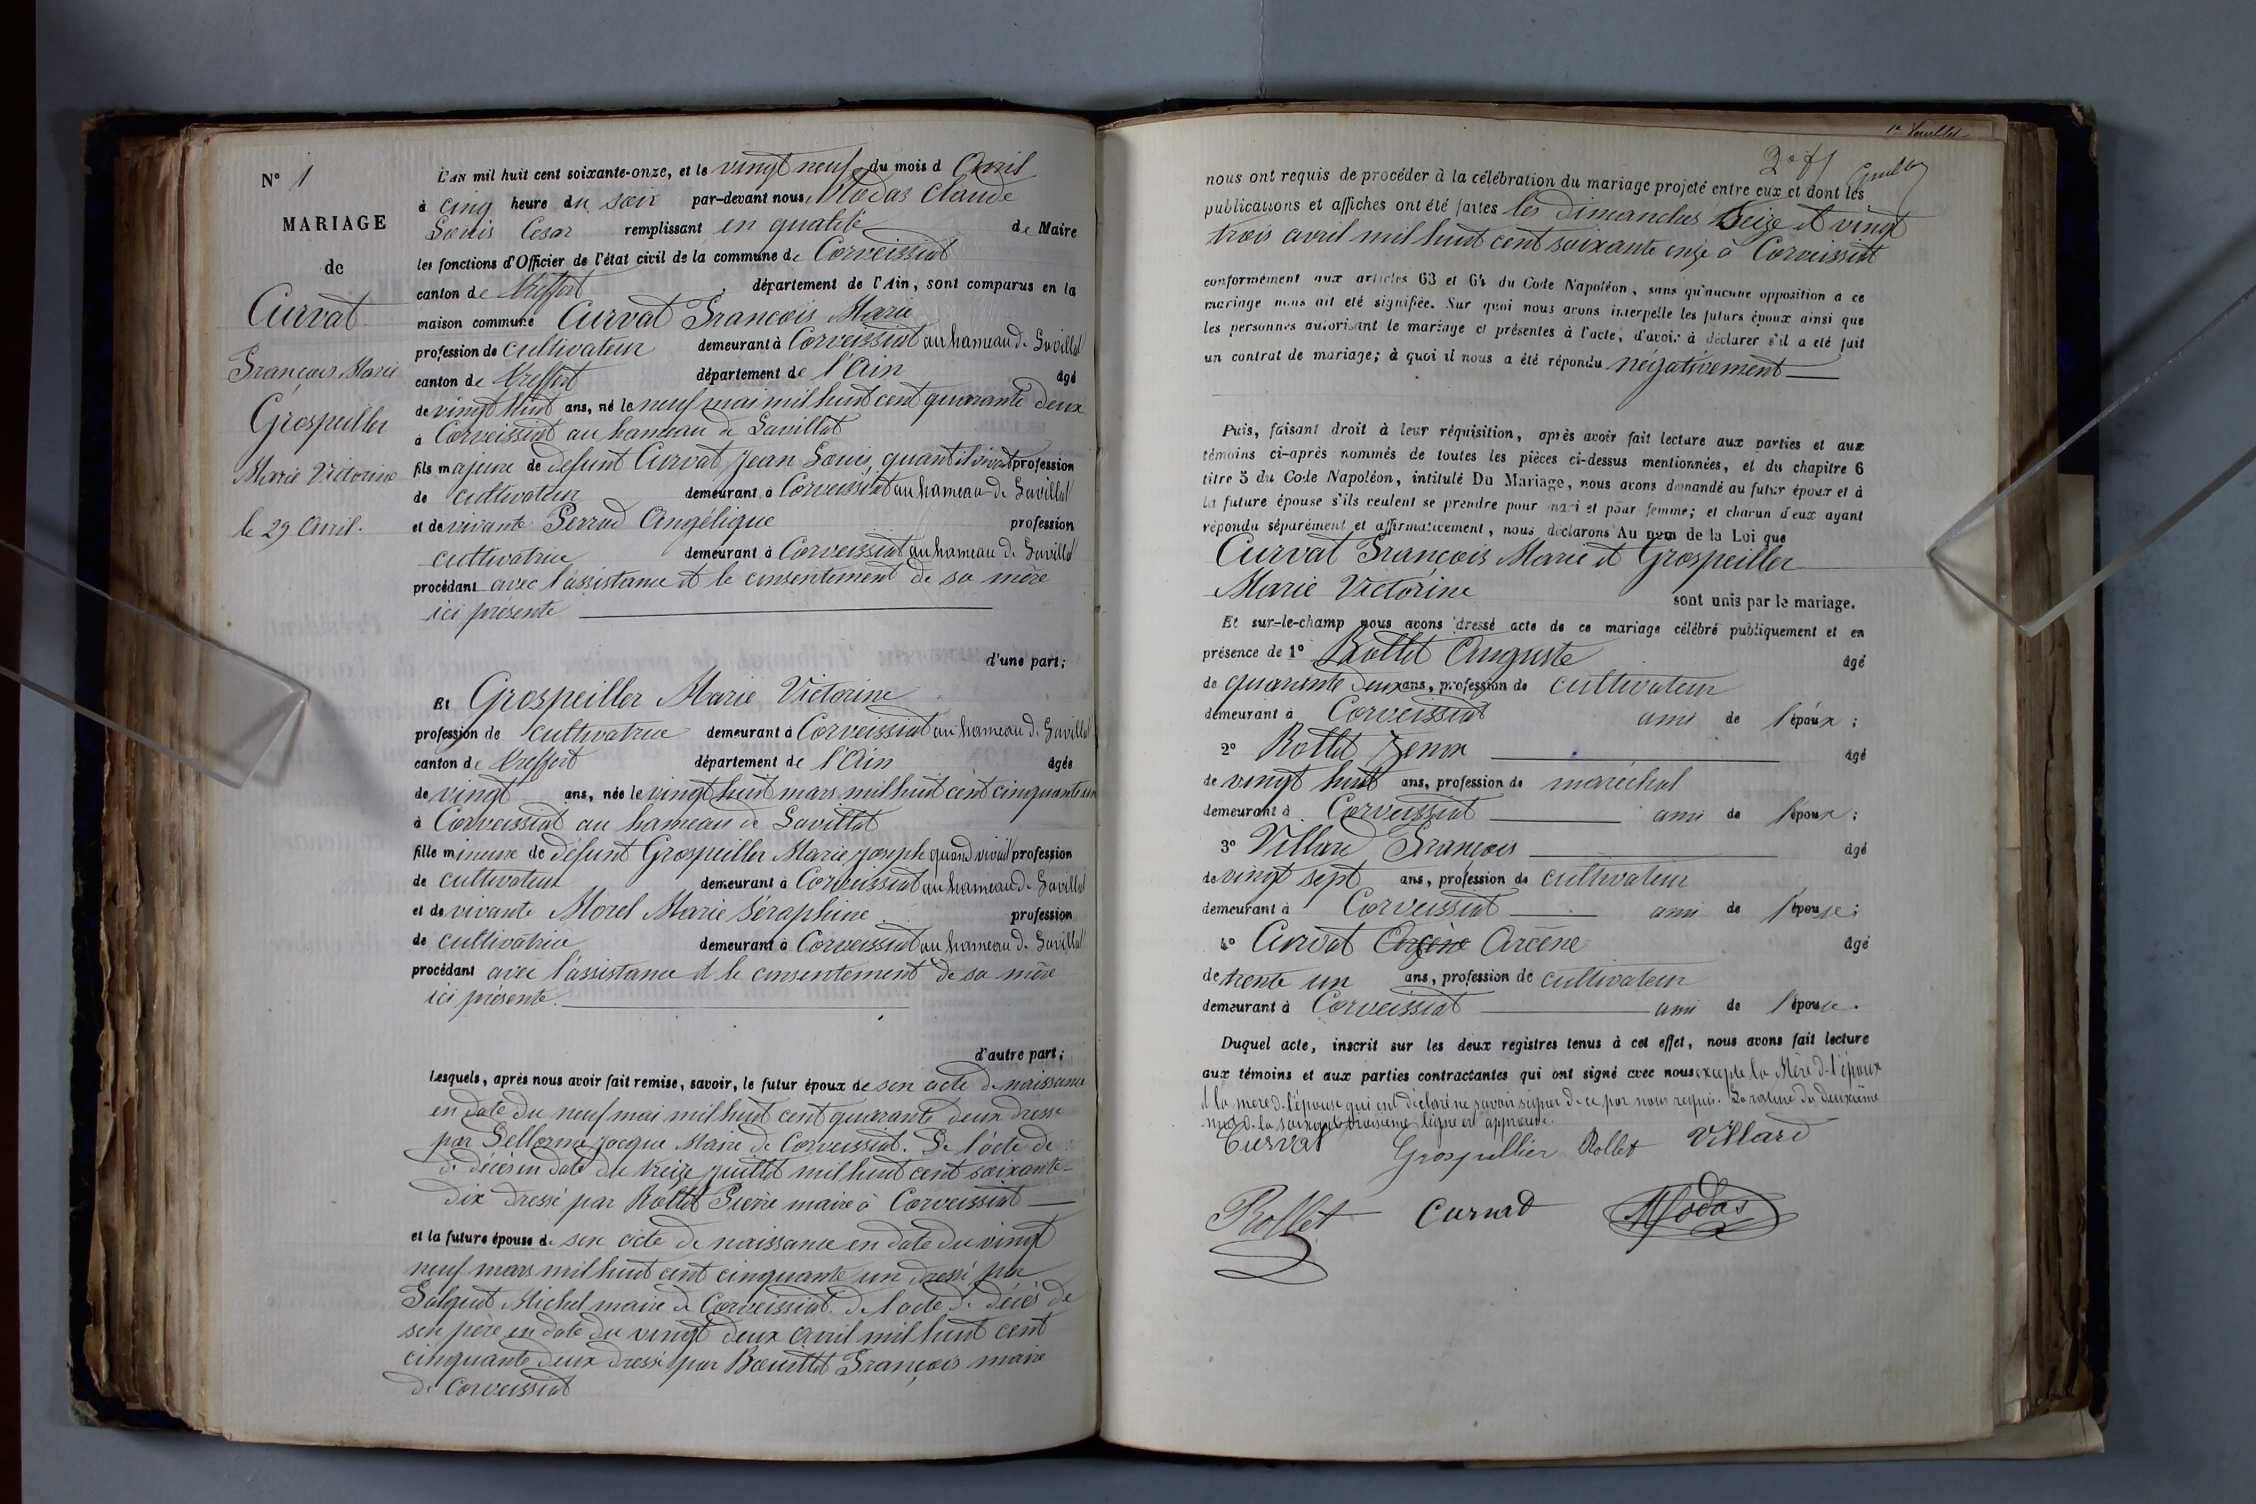 N° 1
MARIAGE
de
Curvat
François Marie
Grospeiller
Marie Victorine
le 29 Avril.
L'AN mil huit cent soixante-onze, et le vingt neuf du mois d Avril
à cinq heure du soir par-devant nous Modas Claude
Louis Cesar remplissant en qualité de Maire
les fonctions d'Officier de l'état civil de la commune de Corveissiat
canton de Treffort département de l'Ain, sont comparus en la
maison commune Curvat François Marie
profession de cultivateur demeurant à Corveissiat au hameau de
canton de Treffort département de l'Ain âgé
de vingt huit ans, né le neuf mai mil huit cent quarante deux
à Corveissiat au hameau de
fils majeur de défunt Curvat Jean Louis quant il vivait profession
de cultivateur demeurant à Corveissiat au hameau de
et de vivante Perrud Angélique profession
cultivatrice demeurant à Corveissiat au hameau de
procédant avec l'assistance et le consentement de sa mère
ici présente
d'une part;
Et Grospeiller Marie Victorine
profession de cultivatrice demeurant à Corveissiat au hameau de
canton de Treffort département de l'Ain âgée
de vingt ans, née le vingt huit mars mil huit cent cinquante un
à Corveissiat au hameau de
fille mineure de défunt Grospeiller Marie Joseph quand vivait profession
de cultivateur demeurant à Corveissiat au hameau de
et de vivante Morel Marie Séraphine profession
de cultivatrice demeurant à Corveissiat au hameau de
procédant avec l'assistance et le consentement de sa mère
ici présente.
d'autre part;
Lesquels, après nous avoir fait remise, savoir, le futur époux de son acte de naissance
en date du neuf mai mil huit cent quarante deux dressé
par Jacque Maire de Corveissiat. De l'acte de
de décès en date du treize juillet mil huit cent soixante-
dix dressé par Rollet Pierre maire à Corveissiat
et la future épouse de son acte de naissance en date du vingt
neuf mars mil huit cent cinquante un dressé par
Michel maire de Corveissiat. de l'acte de décès de
son père en date du vingt deux avril mil huit cent
cinquante deux dressé par François maire
de Corveissiat
1er feuillet
nous ont requis de procéder à la célébration du mariage projeté entre eux et dont les
publications et affiches ont été faites les dimanches Seize et vingt
trois avril mil huit cent soixante onze à Corveissiat
conformément aux articles 63 et 64 du Code Napoléon, sans qu'aucune opposition à ce
mariage nous ait été signifiée. Sur quoi nous avons interpelle les futurs époux ainsi que
les personnes autorisant le mariage et présentes à l'acte, d'avoir à déclarer s'il a été fait
un contrat de mariage; à quoi il nous a été répondu négativement
Puis, faisant droit à leur réquisition, après avoir fait lecture aux parties et aux
témoins ci-après nommés de toutes les pièces ci-dessus mentionnées, et du chapitre 6
titre 5 du Code Napoléon, intitulé Du Mariage, nous avons demandé au futur époux et à
la future épouse s'ils veulent se prendre pour mari et pour femme; et chacun d'eux ayant
répondu séparément et affirmativement, nous déclarons Au nom de la Loi que
Curvat François Marie et Grospeiller
Marie Victorine sont unis par le mariage.
Et sur-le-champ nous avons dressé acte de ce mariage célébré publiquement et en
présence de 1° Rollet Auguste âgé
de quarante deux ans, profession de cultivateur
demeurant à Corveissiat ami de l'époux;
2° Rollet Zenon âgé
de vingt huit ans, profession de maréchal
demeurant à Corveissiat ami de l'époux;
3° Villard François âgé
de vingt sept ans, profession de cultivateur
demeurant à Corveissiat ami de l'épouse;
4° Curvat Arcène âgé
de trente un ans, profession de cultivateur
demeurant à Corveissiat ami de l'épouse.
Duquel acte, inscrit sur les deux registres tenus à cet effet, nous avons fait lecture
aux témoins et aux parties contractantes qui ont signé avec nous excepté la Mère de l'époux
et la mère de l'épouse qui ont déclaré ne savoir signer de ce par nous requis. La rature du deuxième
mot de la soixante troisième ligne est approuvée.
Curvat Grospellier Rollet Villard
Rollet Curvat Modas